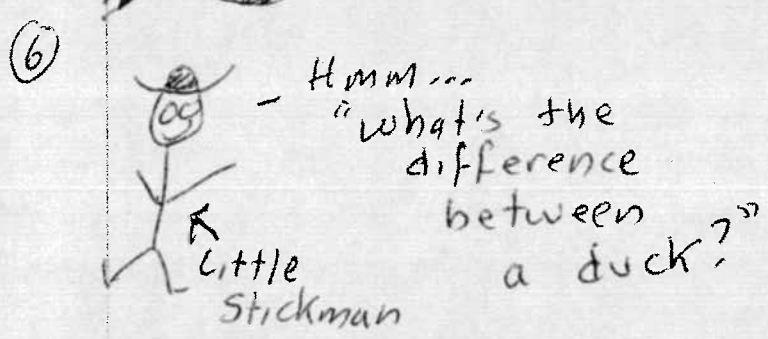 6
Hmm...
"what's the
difference
between
a duck?"
Little
Stickman